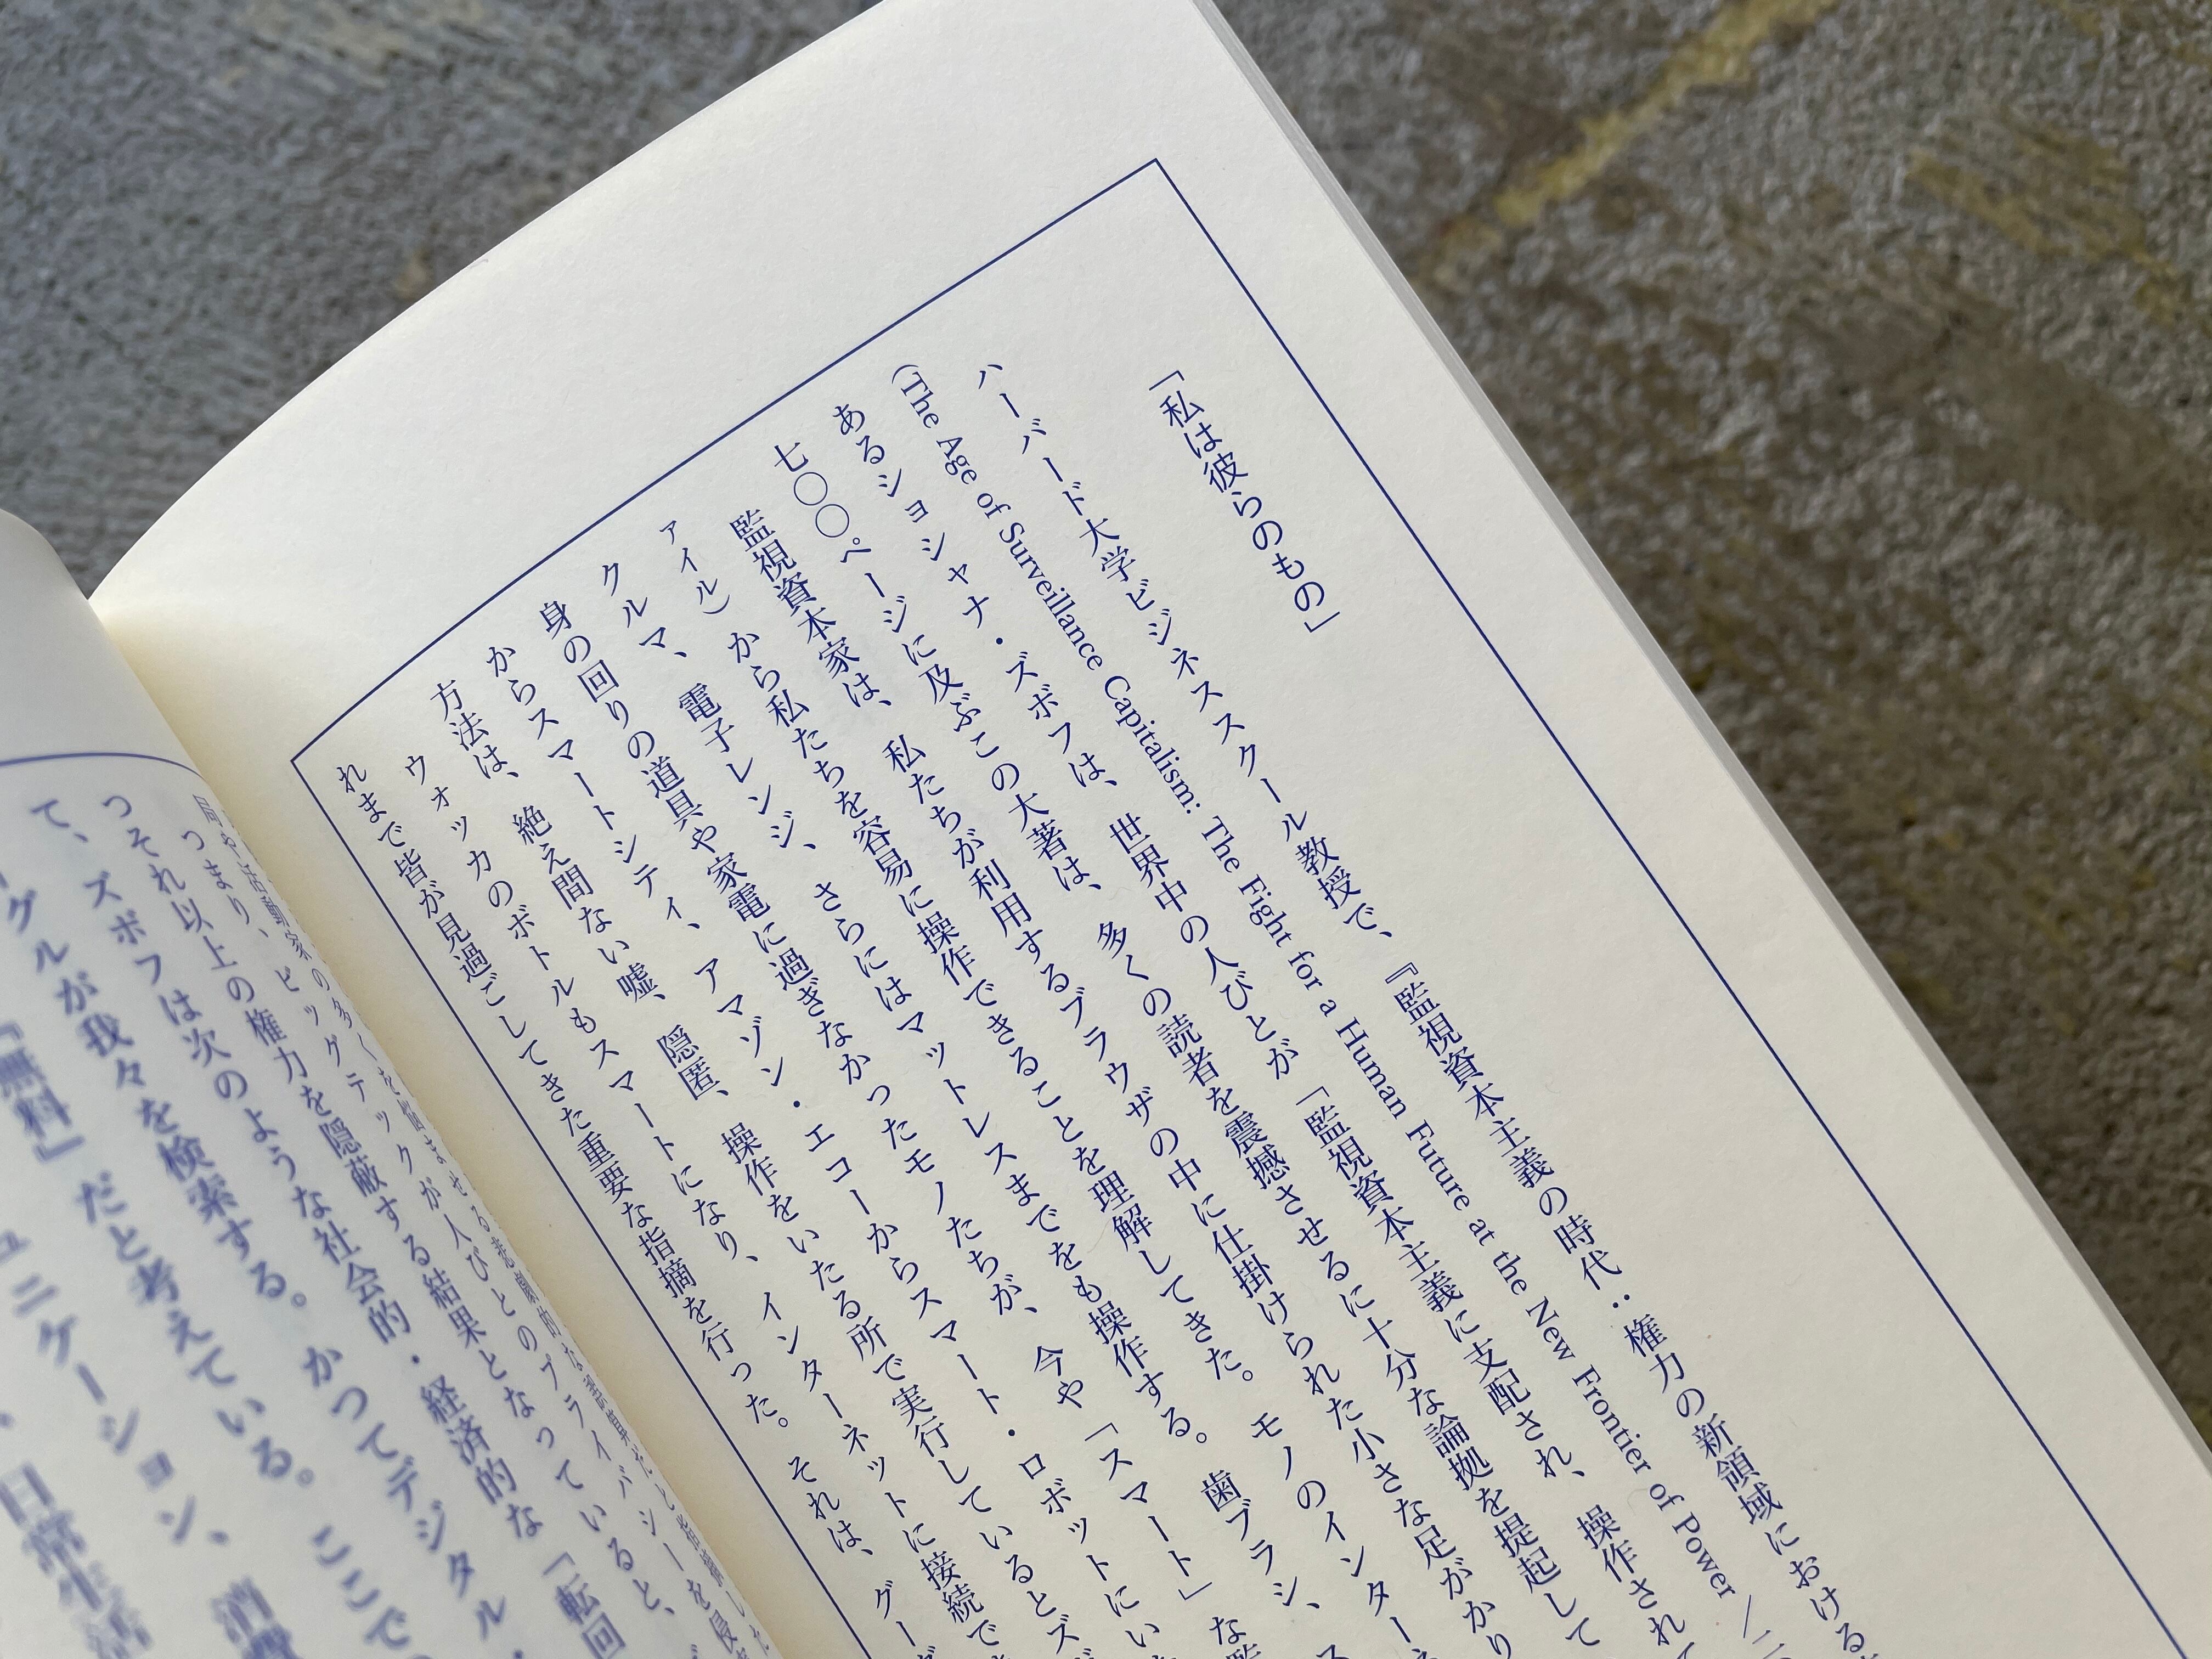 「私は彼らのもの」
ハーバード大学ビジネススクール教授で、『監視資本主義の時代：権力の新領域における
(The Age of Surveillance Capitalism: The Fight for a Human Future at the New Frontier of Power／二
あるショシャナ・ズボフは、世界中の人びとが「監視資本主義に支配され、操作されて
七〇〇ページに及ぶこの大著は、多くの読者を震撼させるに十分な論拠を提起して
監視資本家は、私たちが利用するブラウザの中に仕掛けられた小さな足がかり
ァイル）から私たちを容易に操作できることを理解してきた。モノのインターネ
クルマ、電子レンジ、さらにはマットレスまでをも操作する。歯ブラシ、ス
身の回りの道具や家電に過ぎなかったモノたちが、今や「スマート」な監
からスマートシティ、アマゾン・エコーからスマート・ロボットにい
方法は、絶え間ない嘘、隠匿、操作をいたる所で実行しているとズ
ウォッカのボトルもスマートになり、インターネットに接続で
れまで皆が見過ごしてきた重要な指摘を行った。それは、グーグ
つまり、ビッグテックが人びとのプライバシーを
つそれ以上の権力を隠蔽する結果となっていると、
て、ズボフは次のような社会的・経済的な「転回
ーグルが我々を検索する。かつてデジタル・
「無料」だと考えている。ここで
ュニケーション、消費
日常生活